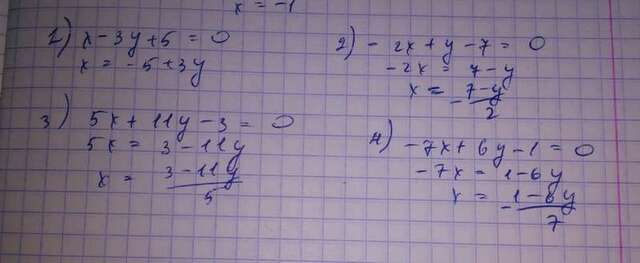 x = -1
1) x - 3y + 5 = 0
x = -5 + 3y
2) - 2x + y - 7 = 0
-2x = 7 - y
x = - 7-y / 2
3) 5x + 11y - 3 = 0
5x = 3 - 11y
x = 3 - 11y / 5
4) -7x + 6y - 1 = 0
-7x = 1 - 6y
x = - 1 - 6y / 7